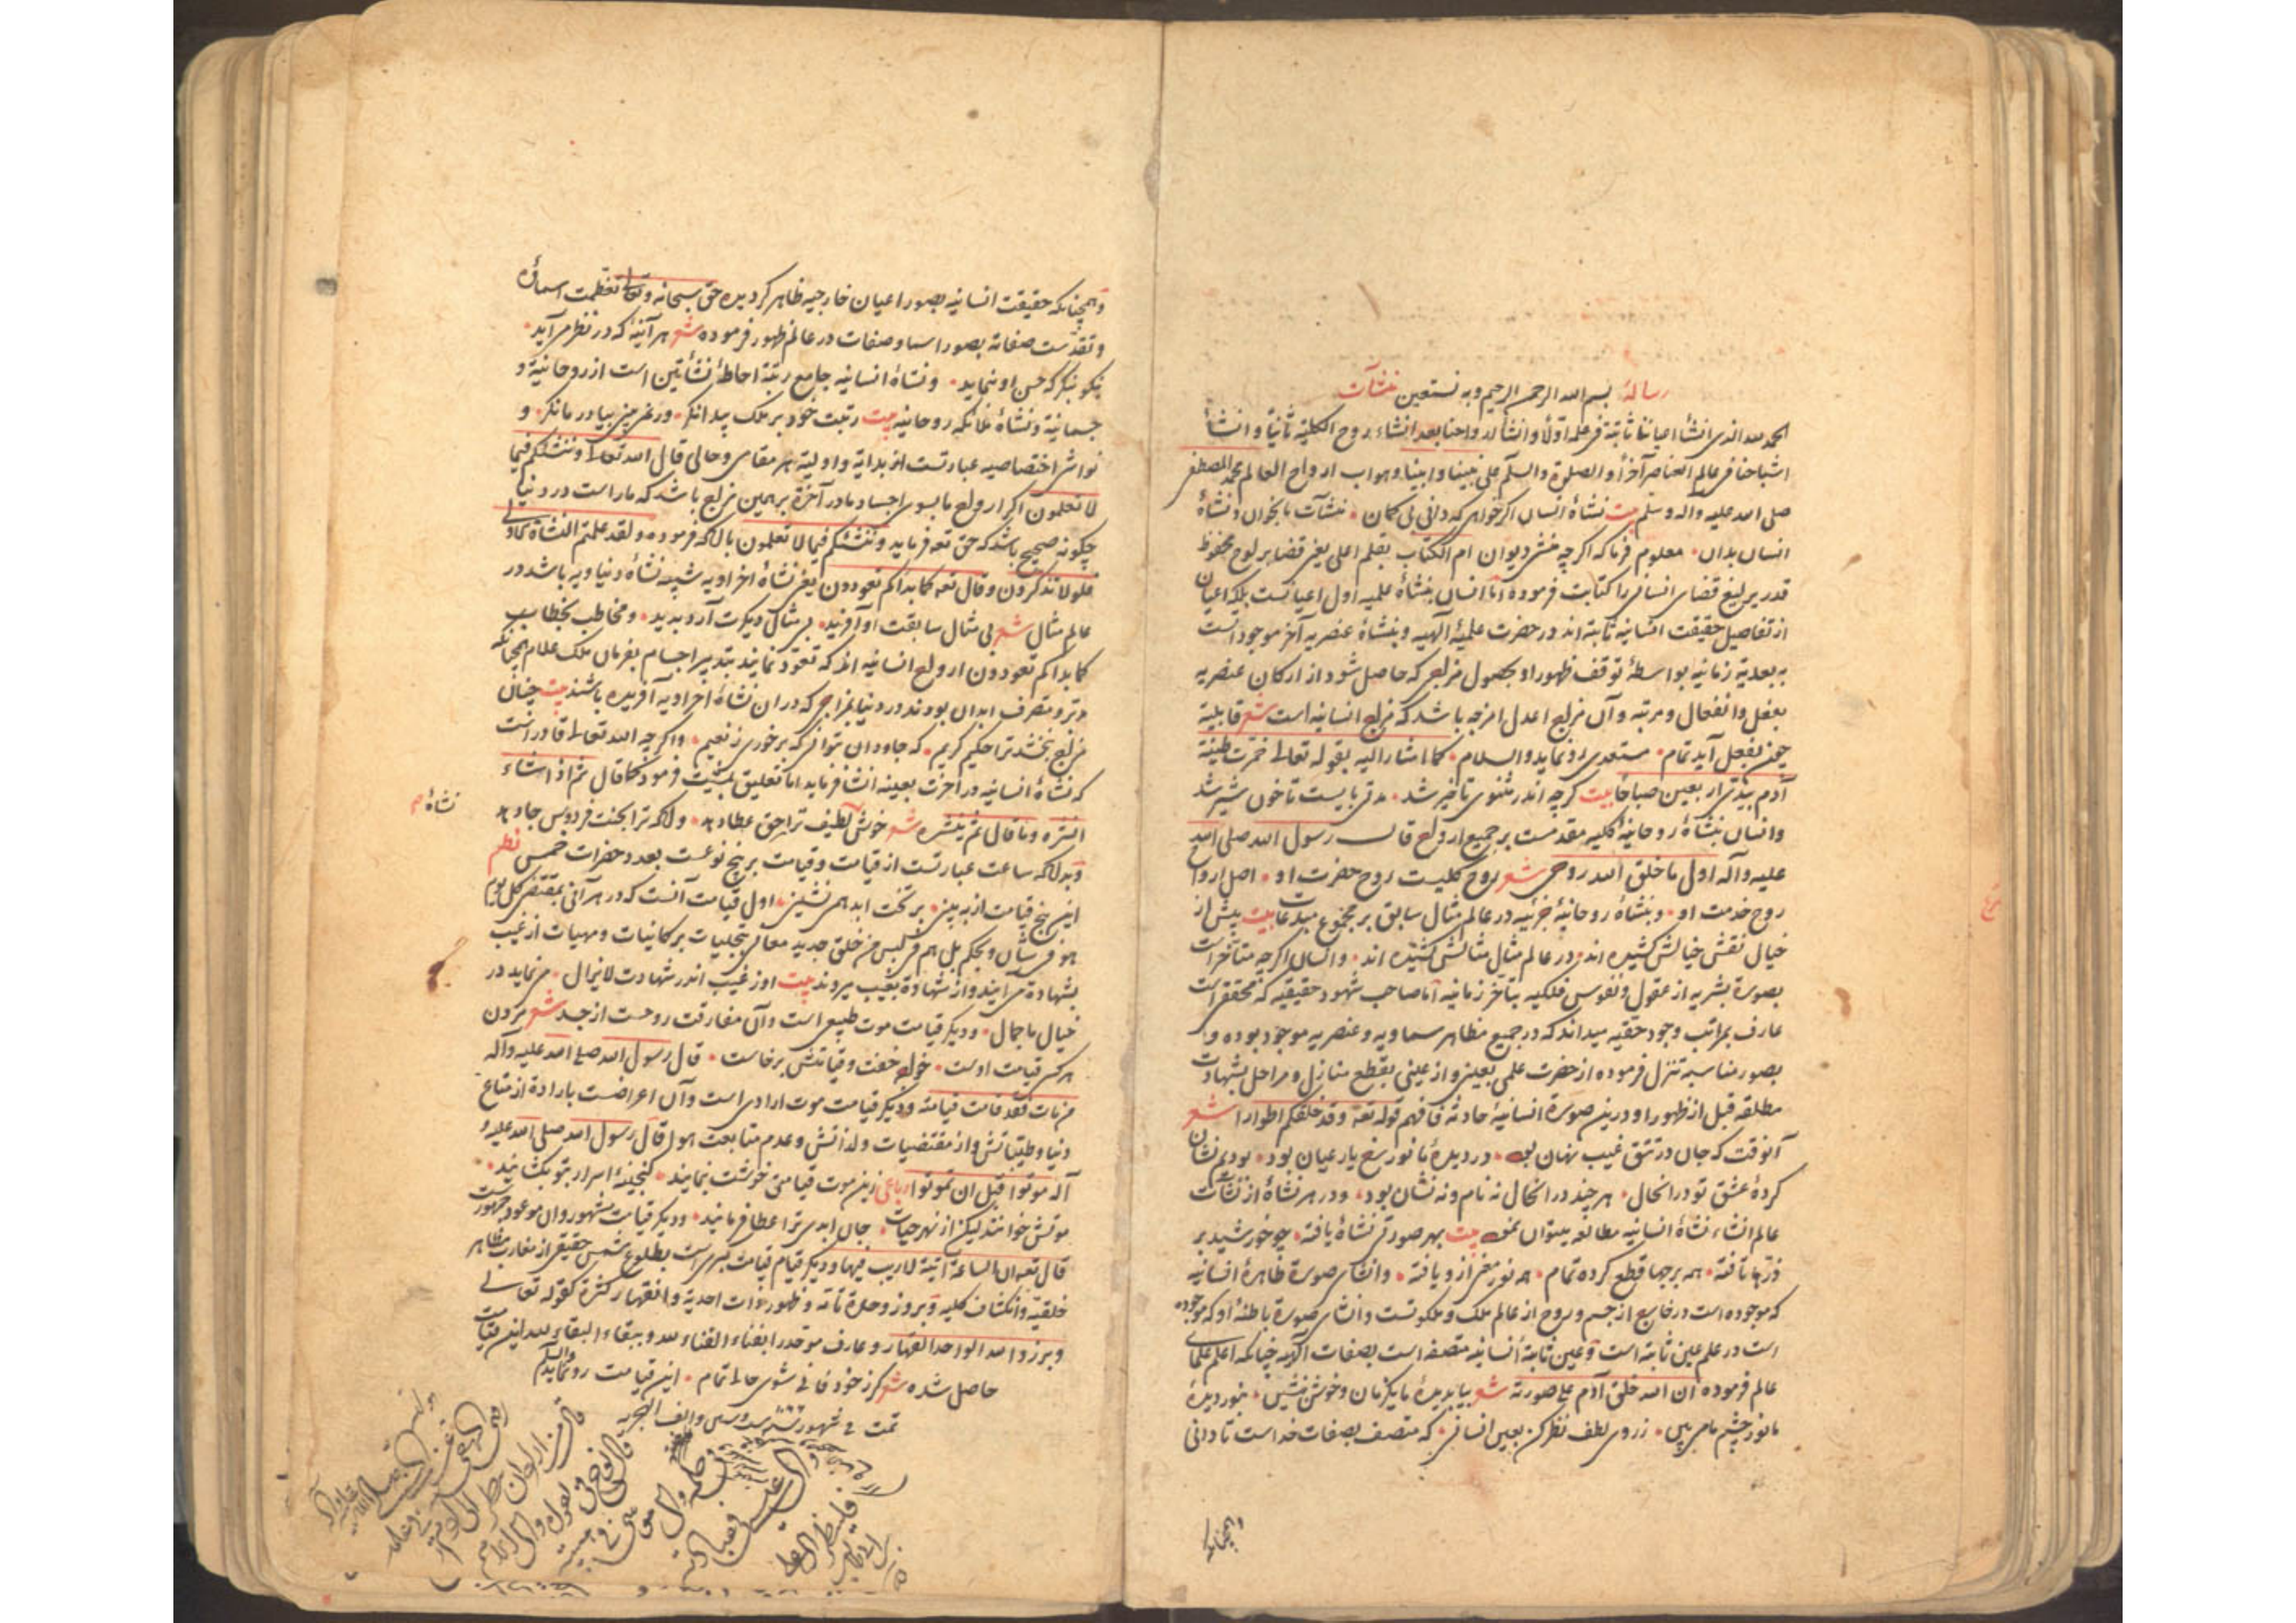 رسالۀ بسم الله الرحمن الرحیم وبه نستعین نشآت
الحمد لله الذی انشأ اعیاننا ثابتة فی علمه اولاً وانشأ ارواحنا بعد انشاء روح الکلیة ثانیاً وانشأ
اشباحنا فی عالم العناصر آخراً والصلوة والسلم علی نبینا وابینا وهو اب ارواح العالم محمد المصطفی
صلی الله علیه وآله وسلم بیت نشاۀ انسان اگر خواهی که دانی بی کمان نشآت ما بخوان ونشاۀ
انسان بدان معلوم فرما که اگرچه منشی دیوان ام الکتاب بقلم اعلی یعنی قضا بر لوح محفوظ
قدر یرلیغ قضای انسانی را کتابت فرموده اما انسان بنشاۀ علمیه اول اعیانست بلکه اعیان
از تفاصیل حقیقت انسانیه ثابته اند در حضرت علمیۀ الهیه وبنشاۀ عنصریه آخر موجوداتست
به بعدیة زمانیه بواسطۀ توقف ظهور او بحصول مزاجی که حاصل شود از ارکان عنصریه
بفعل وانفعال ومرتبه وآن مزاج اعدل امزجه باشد که مزاج انسانیه است شعر قابلیة
چون بفعل آید تمام مستعدی رو نماید والسلام کما اشار الیه بقوله تعالی خمرت طینة
آدم بیدی اربعین صباحاً بیت کرچه اندر مثنوی تاخیر شد مدتی بایست تا خون شیر شد
وانسان بنشاۀ روحانیۀ کلیه مقدمست بر جمیع ارواح قال رسول الله صلی الله
علیه وآله اول ما خلق الله روحی شعر روح کلیست روح حضرت او اصل ارواح
روح خدمت او وبنشاۀ روحانیۀ جزئیه در عالم مثال سابق بر مجموع مبدعات بیت پیش از
خیال نقش خیالش کشیده اند در عالم مثال مثالش کشیده اند وانسان اگرچه متأخر است
بصورة بشریه از عقول ونفوس فلکیه بتأخر زمانیه اما صاحب شهود حقیقیه که محقق است
عارف بمراتب وجود حقیه میداند که در جمیع مظاهر سماویه وعنصریه موجود بوده وا
بصور مناسبه تنزل فرموده از حضرت علمی بعینی واز عینی بقطع منازل ومراحل بشهادت
مطلقه قبل از ظهور او درین صورة انسانیۀ حادثه فافهم قوله تعه وقد خلقکم اطوارا شعر
آنوقت که جان در تتق غیب نهان بود در دیدۀ ما نور رخ یار عیان بود بودیم نشان
کردۀ عشق تو در انحال هر چند در انحال نه نام ونه نشان بود ودر هر نشاۀ از نشآت
عالم انشاء نشاۀ انسانیه مطالعه میتوان نمود بیت بهر صورت نشاۀ یافته چو خورشید بر
ذرها تافته همه برجها قطع کرده تمام همه نور مغز ازو یافته وانشای صورة ظاهرۀ انسانیه
که موجوده است در خارج از جسم وروح از عالم ملک وملکوتست وانشای صورة باطنۀ او که موجوده
است در علم عین ثابته است وعین ثابتۀ انسانیه متصفه است بصفات الهیه چنانکه اعلم علمای
عالم فرموده ان الله خلق آدم علی صورته شعر بیا بدیدۀ ما یکزمان وخوش بنشین بنور دیدۀ
ما نور چشم ما می بین ز روی لطف نظر کن بعین انسانی که متصف بصفات خداست تا دانی
وهمچنانکه
وهمچنانکه حقیقت انسانیه بصور اعیان خارجیه ظاهر کردیده حق سبحانه وتعالی تعظمت اسماؤه
وتقدست صفاته بصور اسما وصفات در عالم ظهور فرموده شعر هر آینۀ که در نظر می آید
نیکو بنگر که حسن او بنماید ونشاۀ انسانیه جامع رتبۀ احاطۀ نشأتین است از روحانیة و
جسمانیة ونشاۀ ملائکه روحانیه بیت رتبت خود بر ملک پیدا نکر ورنمی بینی بیا در ما نکر و
نواشی اختصاصیه عبارتست از بدایة واولیة هر مقامی وحالی قال الله تعالی وننشئکم فیما
لا تعلمون اگر ارواح ما بسوی اجساد ما در آخرة بر همین مزاج باشد که ما راست در دنیا
چکونه صحیح باشد که حق تعه فرماید وننشئکم فیما لا تعلمون با آنکه فرموده ولقد علمتم النشاة الاولی
فلولا تذکرون وقال تعه کما بداکم تعودون یعنی نشاۀ اخراویه شبیه نشاۀ دنیاویه باشد در
عالم مثال شعر بی مثال سابقت او آفرید بی مثال دیکرت آرد بدید ومخاطب بخطاب
کما بداکم تعودون ارواح انسانیه اند که تعود نمایند بتدبیر اجسام بفرمان ملک علام همچنانکه
مدبر ومتصرف ابدان بودند در دنیا بمزاجی که در ان نشاۀ اخراویه آفریده باشند بیت چنان
مزاج ببخشد ترا حکیم کریم که جاودان بتوانی که برخوری ز نعیم واگرچه الله تعالی قادر است
که نشاۀ انسانیه در آخرت بعینه انشا فرماید اما تعلیق بمشیت فرمود کما قال ثم اذا شاء
نشاۀ
انشره وما قال ثم ینشره شعر خوشی لطیف ترا حق عطا دهد والله ترا بجنت فردوس جا دهد
وبدانکه ساعت عبارتست از قیامت وقیامت بر پنج نوعست بعدد حضرات خمس نظم
این پنج قیامت از به بینی بر تخت ابد همی نشینی اول قیامت آنست که در هر آنی بمقتضی کل یوم
هو فی شأن وبحکم بل هم فی لبس من خلق جدید معانی تجلیات بر کائنات ومهیات از غیب
بشهادة می آیند واز شهادة بغیب میروند بیت او ز غیب اندر شهادت لا یزال می نماید در
خیال با جمال ودیکر قیامت موت طبیعی است وآن مفارقت روحست از جسد شعر مردن
هر کس قیامت اوست خواجه خفت وقیامتش برخاست قال رسول الله صلی الله علیه وآله
من مات فقد قامت قیامته ودیکر قیامت موت ارادی است وآن اعراضست بارادة از متاع
دنیا وطیباتش واز مقتضیات ولذاتش وعدم متابعت هوا قال رسول الله صلی الله علیه و
آله موتوا قبل ان تموتوا رباعی زین موت قیامتی خوشت بنمایند کنجینۀ اسرار بتو بکشایند
موتش خوانند لیکن از نهر حیات جان ابدی ترا عطا فرمایند ودیکر قیامت مشهور وآن موعود جمهورست
قال تعه ان الساعة آتیة لا ریب فیها ودیکر قیام قیامت کبری است بطلوع شمس حقیقی از مغارب مظاهر
خلقیه وانکشاف کلیه وبروز وحدة تامه وظهور ذات احدیة وانقهار کثرة کقوله تعالی
وبرزوا لله الواحد القهار وعارف موحد را بفناء الفناء لله وببقاء البقاء لله این قیامت
حاصل شده شعر کر ز خود فانی شوی حالی تمام این قیامت رو نماید والسلم
تمت فی شهور سنه ست وستین والف الهجریه